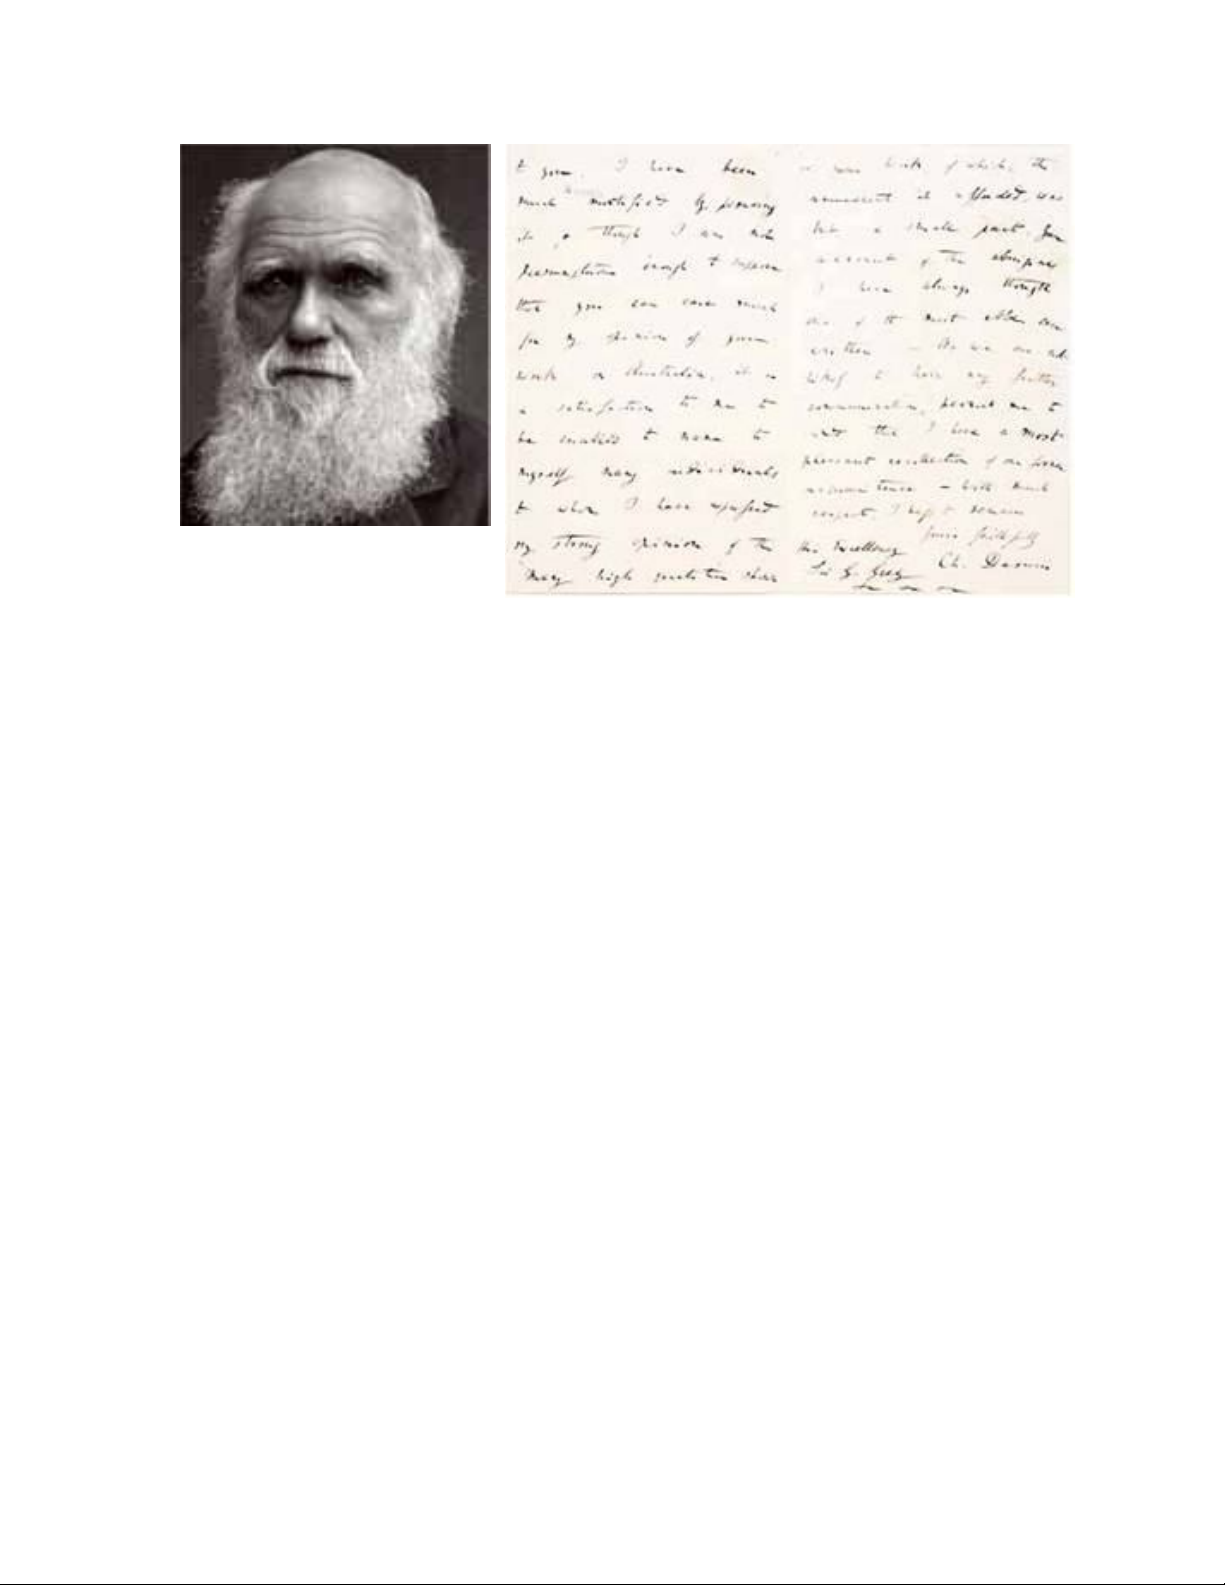 to you. I have been
much mortified by perusing
it, though I am not
presumptuous enough to suppose
that you can care much
for my opinion of your
work on Australia, it is
a satisfaction to me to
be enabled to name to
myself many individuals
to whom I have expressed
my strong opinion of the
many high qualities shewn
in your work, of which, the
amusement it afforded, was
but a small part. Your
account of the aborigines
I have always thought
one of the most able ever
written — As we are not
likely to have any further
communication, permit me to
add that I have a most
pleasant recollection of our former
acquaintance — with much
respect, I beg to remain
Yours faithfully
Ch. Darwin
His Excellency
Sir G. Grey